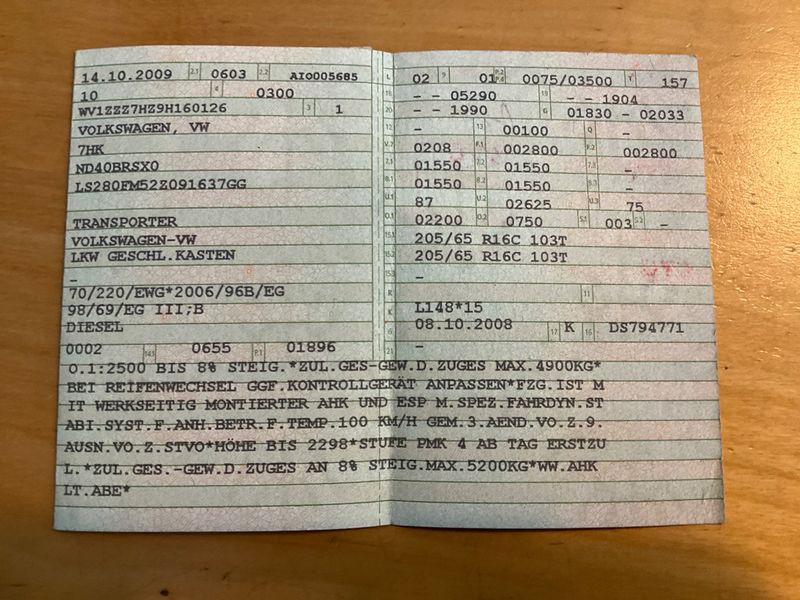 14.10.2009 2.1 0603 2.2 AIO005685
10 0300
WV1ZZZ7HZ9H160126 3 1
VOLKSWAGEN, VW
7HK
ND40BRSX0
LS280FM52Z091637GG
TRANSPORTER
VOLKSWAGEN-VW
LKW GESCHL.KASTEN
-
70/220/EWG*2006/96B/EG
98/69/EG III;B
DIESEL
0002 14.1 0655 P.1 01896
L 02 9 01 P.2 P.4 0075/03500 T 157
18 - - 05290 19 - - 1904
20 - - 1990 G 01830 - 02033
12 - 13 00100 Q -
V.7 0208 F.1 002800 F.2 002800
7.1 01550 7.2 01550 7.3 -
8.1 01550 8.2 01550 8.3 -
U.1 87 U.2 02625 U.3 75
O.1 02200 O.2 0750 S.1 003 S.2 -
15.1 205/65 R16C 103T
15.2 205/65 R16C 103T
15.3 -
R 11
K L148*15
6 08.10.2008 17 K 16 DS794771
21 -
O.1:2500 BIS 8% STEIG.*ZUL.GES-GEW.D.ZUGES MAX.4900KG*
BEI REIFENWECHSEL GGF.KONTROLLGERÄT ANPASSEN*FZG.IST M
IT WERKSEITIG MONTIERTER AHK UND ESP M.SPEZ.FAHRDYN.ST
ABI.SYST.F.ANH.BETR.F.TEMP.100 KM/H GEM.3.AEND.VO.Z.9.
AUSN.VO.Z.STVO*HÖHE BIS 2298*STUFE PMK 4 AB TAG ERSTZU
L.*ZUL.GES.-GEW.D.ZUGES AN 8% STEIG.MAX.5200KG*WW.AHK
LT.ABE*